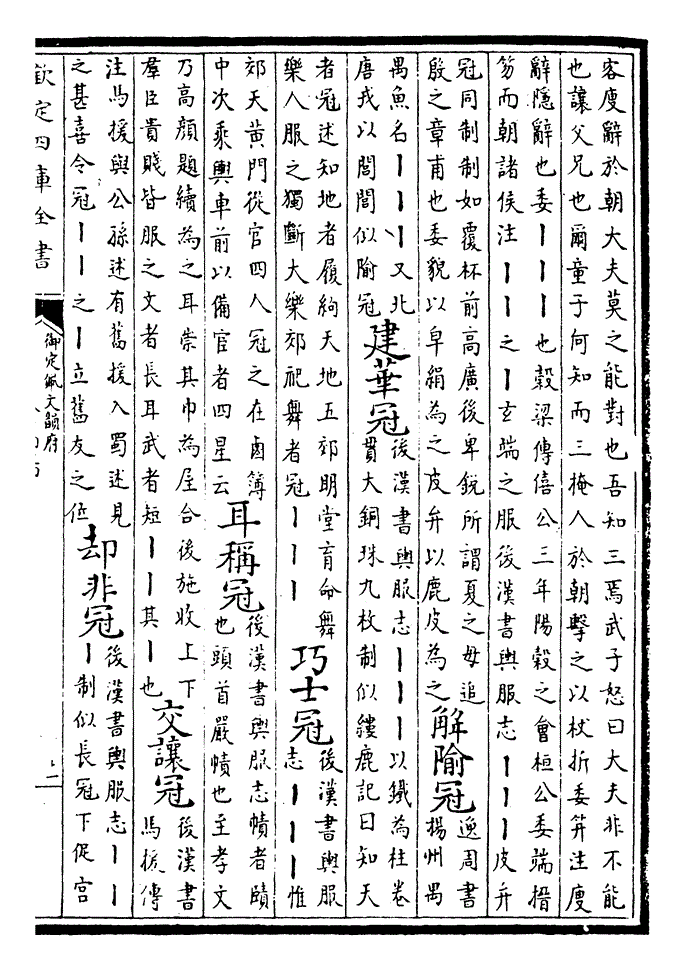 客廋辭於朝大夫莫之能對也吾知三焉武子怒曰大夫非不能
也讓父兄也爾童子何知而三掩人於朝擊之以杖折委笄注廋
辭隱辭也委丨丨丨也榖梁傳僖公三年陽榖之會桓公委端搢
笏而朝諸侯注丨丨之丨玄端之服後漢書輿服志丨丨丨皮弁
冠同制制如覆杯前高廣後卑銳所謂夏之毋追
殷之章甫也委貌以皁絹為之皮弁以鹿皮為之
解隃冠
逸周書
揚州禺
禺魚名丨丨丨又北
唐戎以閭閭似隃冠
建華冠
後漢書輿服志丨丨丨以鐵為柱卷
貫大銅珠九枚制似縷鹿記曰知天
者冠述知地者履絇天地五郊明堂育命舞
樂人服之獨斷大樂郊祀舞者冠丨丨丨
巧士冠
後漢書輿服
志丨丨丨惟
郊天黄門從官四人冠之在鹵簿
中次乘輿車前以備宦者四星云
耳稱冠
後漢書輿服志幘者賾
也頭首嚴幘也至孝文
乃高顔題續為之耳崇其巾為屋合後施收上下
羣臣貴賤皆服之文者長耳武者短丨丨其丨也
交讓冠
後漢書
馬援傳
注馬援與公孫述有舊援入蜀述見
之甚喜令冠丨丨之丨立舊友之位
却非冠
後漢書輿服志丨丨
丨制似長冠下促宫
欽定四庫全書
御定佩文韻府